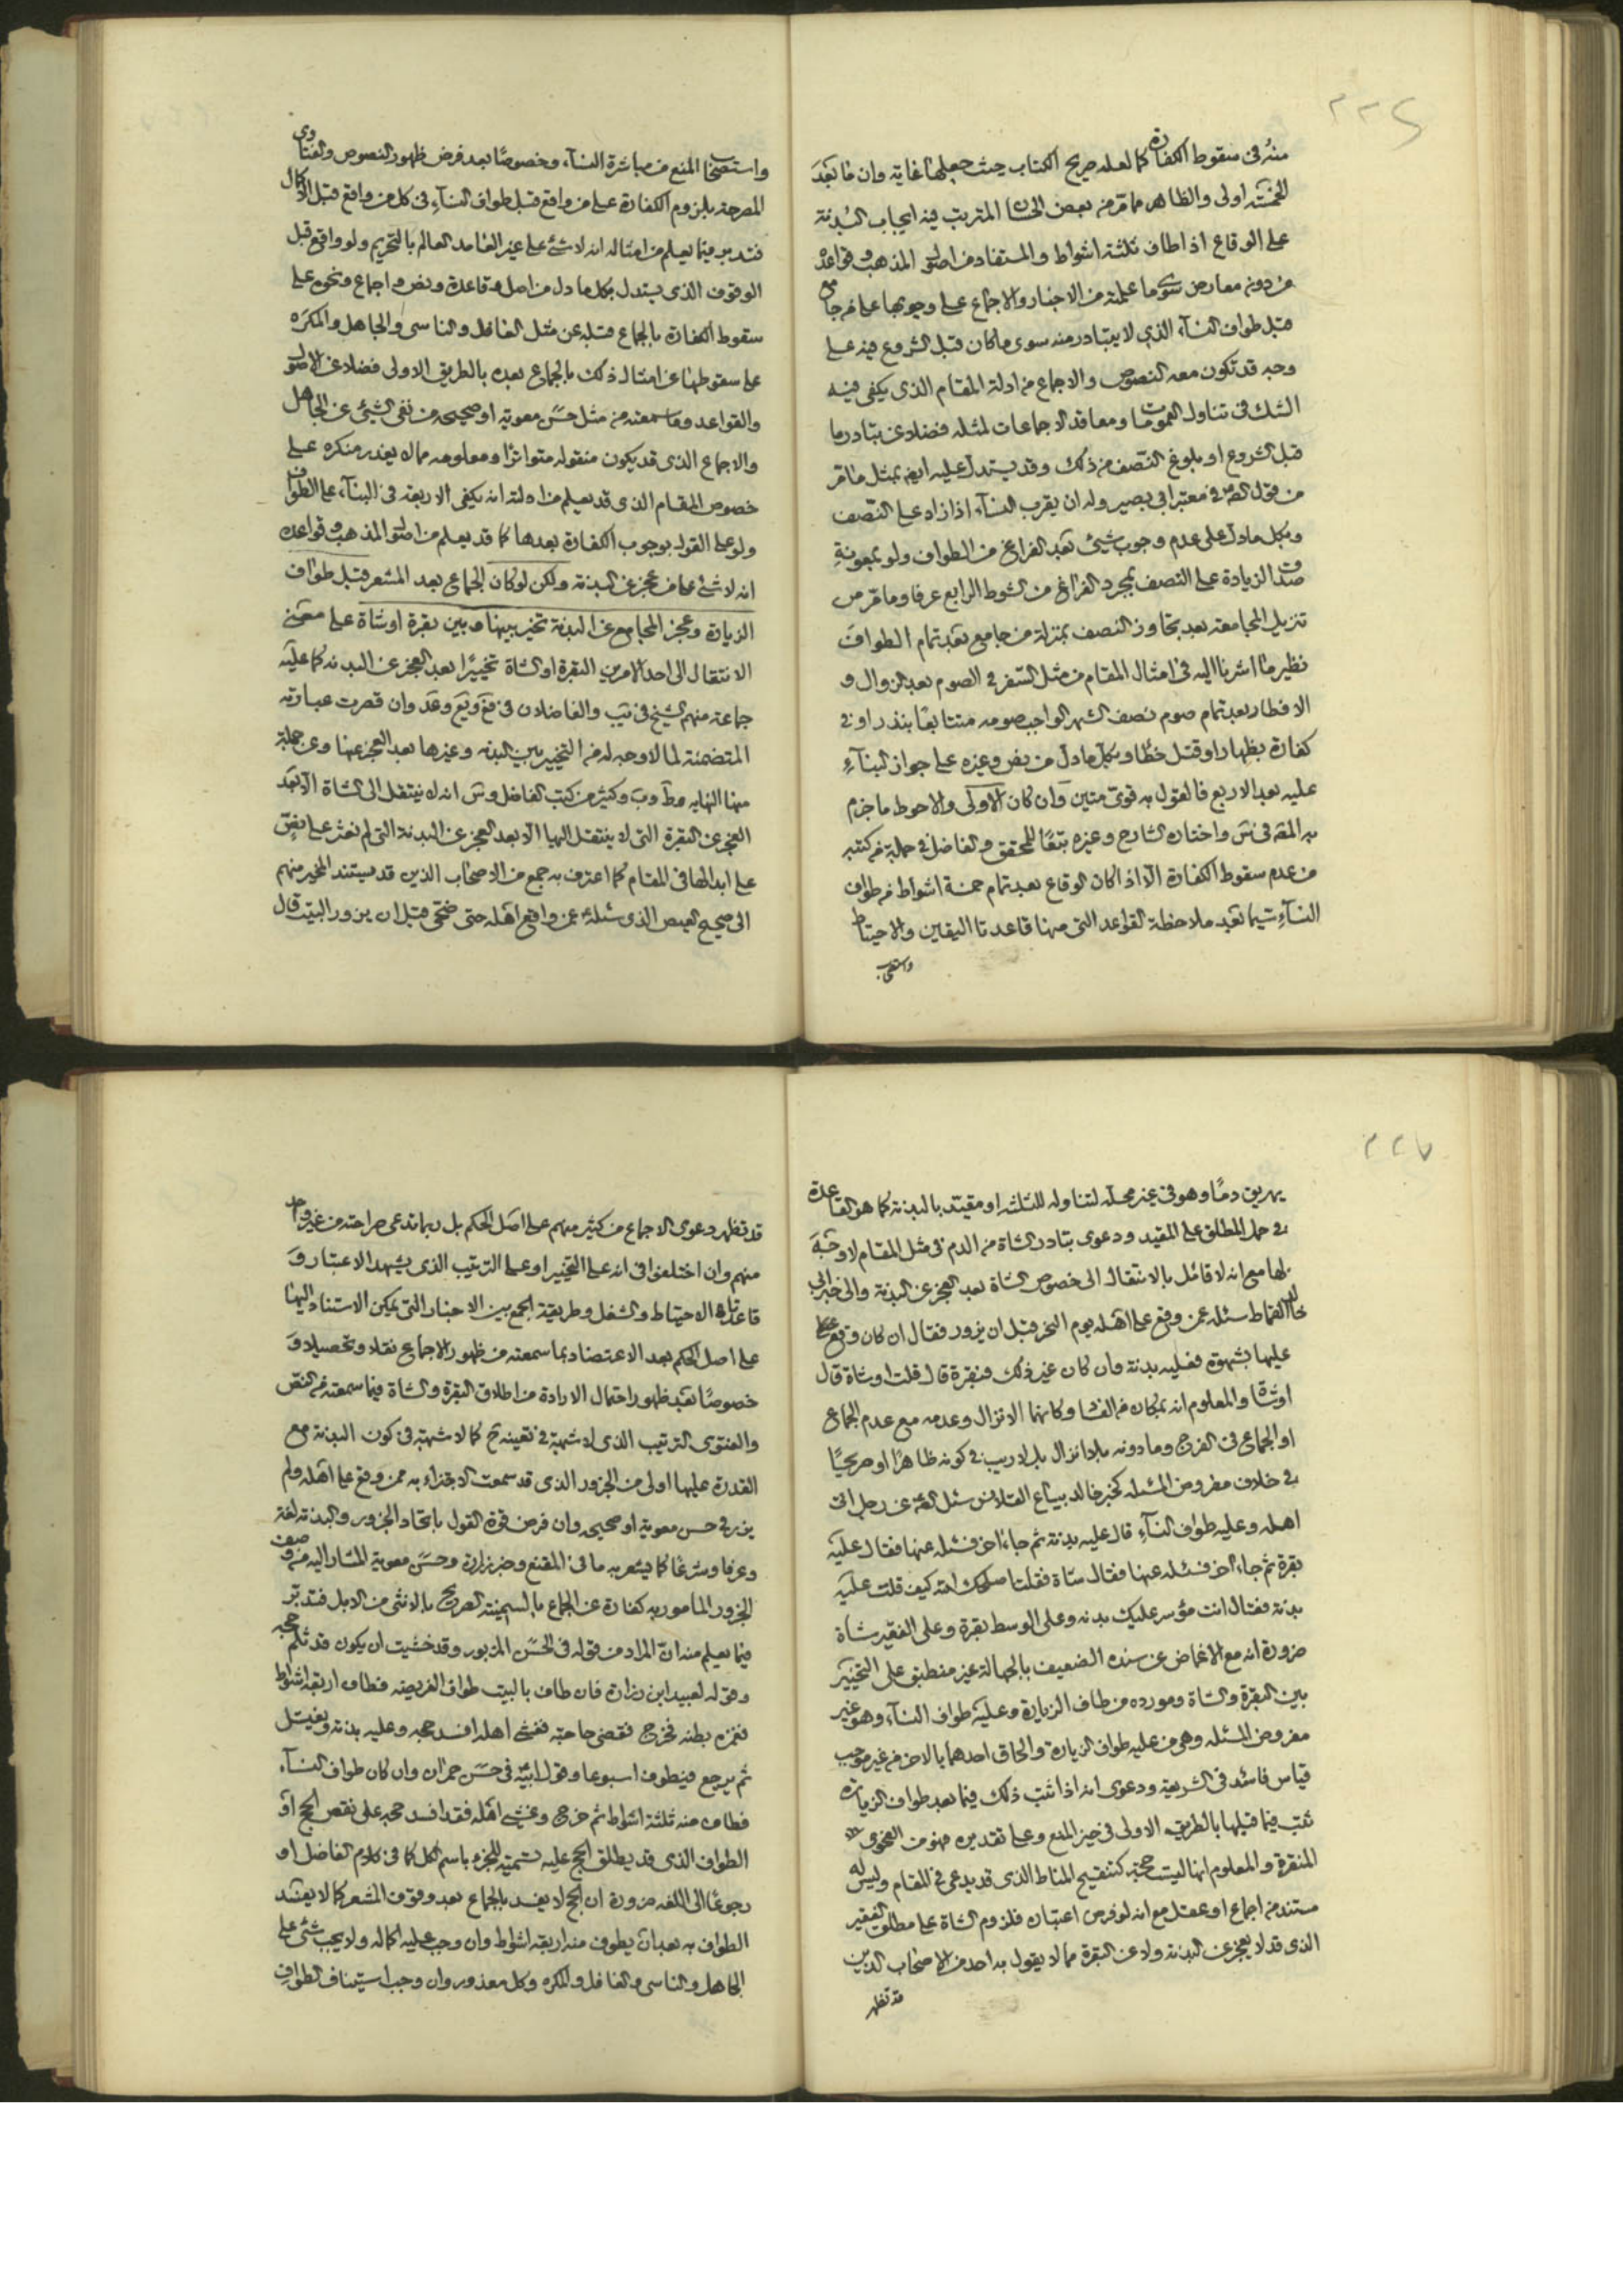 ٢٢٤
منه فى سقوط الكفارة كما لعله صريح الكتاب حيث جعلها غاية وان ما بعد
الخمسة اولى والظاهر مما مر من بعض المترتب فيه ايجاب البدنة
على الوقاع اذا طاف ثلثة اشواط والمستفاد من اصول المذهب وقواعده
من دون معارض سوى ما علمته من الاخبار والاجماع على وجوبها على من جامع
قبل طواف النسآء الذى لا يتبادر منه سوى ما كان قبل الشروع فيه على
وجه قد تكون معه النصوص والاجماع من ادلة المقام الذى يكفى فيه
الشك فى تناول العمومات ومعاقد الاجماعات لمثله فضلا عن تبادر ما
قبل الشروع او بلوغ النصف من ذلك وقد يستدل عليه ايضا بمثل ما مر
من قول فى معتبر ابى بصير وله ان يقرب النسآء اذا زاد على النصف
وبكل ما دل على عدم وجوب شئ بعد الفراغ من الطواف ولو بمعونة
صدق الزيادة على النصف بمجرد الفراغ من الشوط الرابع عرفا وما مر من
تنزيل المجامعة بعد تجاوز النصف بمنزلة من جامع بعد تمام الطواف
نظير ما اشرنا اليه فى امثال المقام من مثل السفر فى الصوم بعد الزوال و
الافطار بعد تمام صوم نصف الشهر الواجب صومه متتابعا بنذر او فى
كفارة بظهار او قتل خطأ وبكل ما دل من نص وغيره على جواز البنآء
عليه بعد الاربع فالقول به قوى متين وان كان الاولى والاحوط ما جزم
به المصـ فى واختاره الشارح وغيره تبعا للمحقق والفاضل فى جملة من كتبه
من عدم سقوط الكفارة الا اذا كان الوقاع بعد تمام خمسة اشواط من طواف
النسآء سيما بعد ملاحظة القواعد التى منها قاعدتا اليقين والاحتياط
واستصحاب
واستصحاب المنع من مباشرة النسآء وخصوصا بعد فرض ظهور النصوص والفتاوى
المصرحة بلزوم الكفارة على من واقع قبل طواف النسآء فى كل من واقع قبل الاكمال
فتدبر فيما يعلم من امثاله انه لا شئ على غير العامد العالم بالتحريم ولو واقع قبل
الوقوف الذى يستدل بكل ما دل من اصل وقاعدة ونص واجماع ونحوه على
سقوط الكفارة بالجماع قبله عن مثل الغافل والناسى والجاهل والمكره
على سقوطها عن امثال ذلك بالجماع بعده بالطريق الاولى فضلا عن الاصول
والقواعد وما سمعته من مثل حسن معوية او صحيحه من نفى الشئ عن الجاهل
والاجماع الذى قد يكون منقوله متواترا ومعلومه مما لا يعذر منكره على
خصوص المقام الذى قد يعلم من ادلته انه يكفى الاربعة فى البنآء على الطواف
ولو على القول بوجوب الكفارة بعدها كما قد يعلم من اصول المذهب وقواعده
انه لا شئ على من عجز عن البدنة ولكن لو كان الجماع بعد المشعر قبل طواف
الزيارة وعجز المجامع عن البدنة تخير بينها وبين بقرة او شاة على معنى
الانتقال الى احد الامرين البقرة او الشاة تخييرا بعد العجز عن البدنة كما عليه
جماعة منهم الشيخ فى يب والفاضلان فى فع ويع وعد وان قصرت عبارته
المتضمنة لما لا وجه له من التخيير بين البدنه وغيرها بعد العجز عنها وعن جملة
منها النهايه وط وب وكثير من كتب الفاضل وس انه لا ينتقل الى الشاة الا بعد
العجز عن البقرة التى لا ينتقل اليها الا بعد العجز عن البدنة التى لم نعثر على نص
على ابدالها فى المقام كما اعترف به جمع من الاصحاب الذين قد يستند المخير منهم
الى صحيح العيص الذى سئله عمن واقع اهله حتى ضحى قبل ان يزور البيت قال
٢٢٧
يهريق دما وهو فى غير محله لتناوله للثلثه او مقيد بالبدنة كما هو القاعدة
فى حمل المطلق على المقيد ودعوى تبادر الشاة من الدم فى مثل المقام لا وجه
لها مع انه لا قائل بالانتقال الى خصوص الشاة بعد العجز عن البدنة والى خبر ابى
خالد القماط سئله عمن وقع على اهله يوم النحر قبل ان يزور فقال ان كان وقع
عليها بشهوة فعليه بدنة وان كان غير ذلك فبقرة قال قلت او شاة قال
او شاة والمعلوم انه بمكان من وكانهما الانزال وعدمه مع عدم الجماع
او الجماع فى الفرج وما دونه بلا انزال بل لا ريب فى كونه ظاهرا او صريحا
فى خلاف مفروض المسئله كخبر خالد بياع القلانس سئل عن رجل اتى
اهله وعليه طواف النسآء قال عليه بدنة ثم جاءه اخر فسئله عنها فقال عليه
بقرة ثم جاءه اخر فسئله عنها فقال شاة فقلت اصلحك الله كيف قلت عليه
بدنة فقال انت موسر عليك بدنه وعلى الوسط بقرة وعلى الفقير شاة
ضرورة انه مع الاغماض عن سنده الضعيف بالجهالة غير منطبق على التخيير
بين البقرة والشاة ومورده من طاف الزيارة وعليه طواف النسآء وهو غير
مفروض المسئله وهى من عليه طواف الزيارة والحاق احدهما بالاخر من غير موجب
قياس فاسد فى الشريعة ودعوى انه اذا ثبت ذلك فيما بعد طواف الزيارة
ثبت فيما قبلها بالطريق الاولى فى حيز المنع وعلى تقديره فهو من الفحوى
المنقرة والمعلوم انها ليست حجة كتنقيح المناط الذى قد يدعى فى المقام وليس له
مستند من اجماع او عقل مع انه لو فرض اعتباره فلزوم الشاة على مطلق الفقير
الذى قد لا يعجز عن البدنة ولا عن البقرة مما لا يقول به احد من الاصحاب الذين
قد تظهر
قد تظهر دعوى الاجماع من كثير منهم على اصل الحكم بل ربما تدعى صراحته من غير واحد
منهم وان اختلفوا فى انه على التخيير او على الترتيب الذى يشهد الاعتبار و
قاعدتا الاحتياط والشغل وطريقة الجمع بين الاخبار التى يمكن الاستناد اليها
على اصل الحكم بعد الاعتضاد بما سمعته من ظهور الاجماع نقلا وتحصيلا و
خصوصا بعد ظهور احتمال الارادة من اطلاق البقرة والشاة فيما سمعته من النص
والفتوى الترتيب الذى لا شبهة فى تعينه ح كما لا شبهة فى كون البدنة مع
القدرة عليها اولى من الجزور الذى قد سمعت الاجتزاء به ممن وقع على اهله ولم
يزر فى حسن معوية او صحيحه وان فرض قوة القول باتحاد الجزور والبدنة لغة
وعرفا وشرعا كما يشعر به ما فى المقنع وخبر زرارة وحسن معوية المشار اليه من وصف
الجزور المامور به كفارة عن الجماع بالسمينة الصريح بالانثى من الابل فتدبر
فيما يعلم منه ان المراد من قوله فى الحسن المزبور وقد خشيت ان يكون قد ثلم حجه
وقوله لعبيد ابن زرارة فان طاف بالبيت طواف الفريضه فطاف اربعة اشواط
فغمزه بطنه فخرج فقضى حاجته فغشى اهله افسد حجه وعليه بدنة ويغتسل
ثم يرجع فيطوف اسبوعا وقول ابيه فى حسن حمران وان كان طواف النسآء
فطاف منه ثلثة اشواط ثم خرج وغشى اهله فقد افسد حجه على نقص الحج او
الطواف الذى قد يطلق الحج عليه تسمية للجزء باسم الكل كما فى كلام الفاضل او
رجوعا الى اللغه ضرورة ان الحج لا يفسد بالجماع بعد وقوف المشعر كما لا يفسد
الطواف به بعد ان يطوف منه اربعة اشواط وان وجب عليه اكماله ولا يجب شئ على
الجاهل والناسى والغافل والمكره وكل معذور وان وجب استيناف الطواف